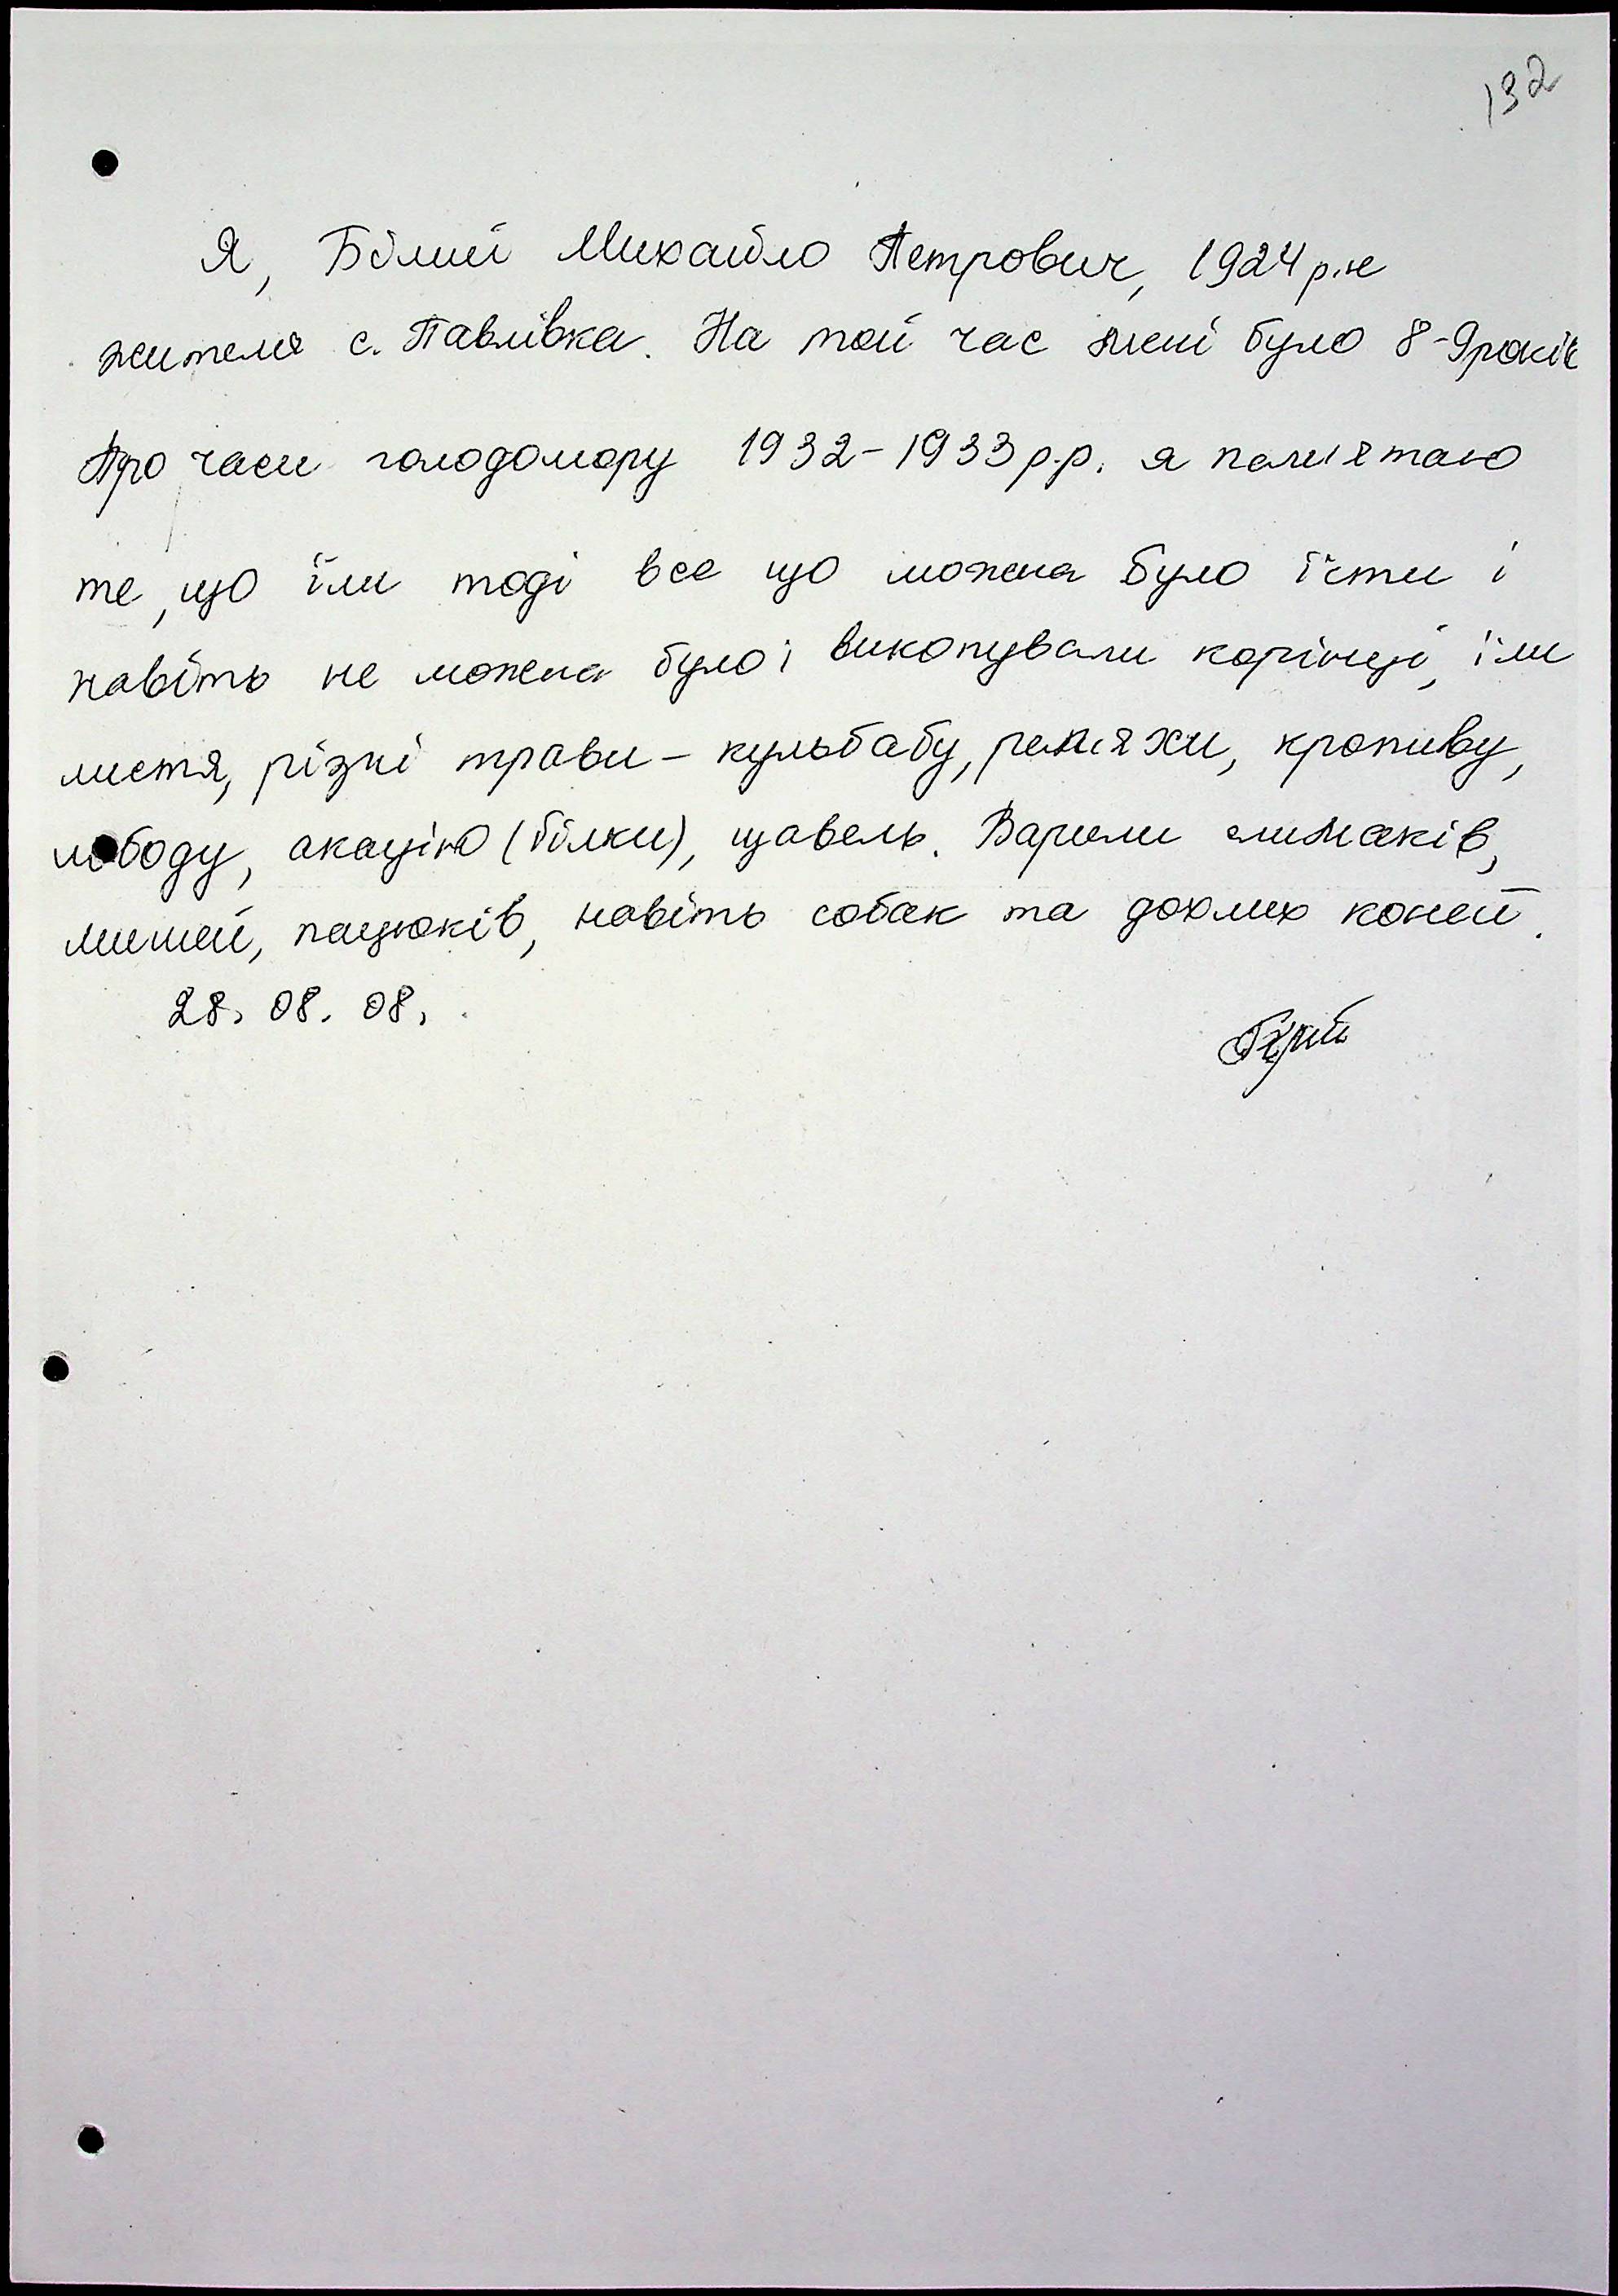 132
Я, Білий Михайло Петрович, 1924 р.н
жителя с. Павлівка. На той час мені було 8-9 років
Про часи голодомору 1932-1933 р.р. я пам'ятаю
те, що їли тоді все що можна було їсти і
навіть не можна було і викопували корінці, їли
листя, різні трави - кульбабу, реп'яхи, кропиву,
лободу, акацію (білки), щавель. Варили слимаків,
мишей, пацюків, навіть собак та дохлих коней.
28. 08. 08.